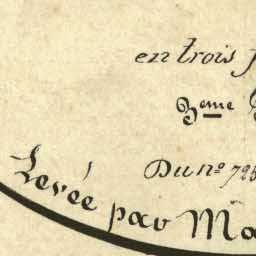 en trois
3eme
Du no. 725
Levée par Ma